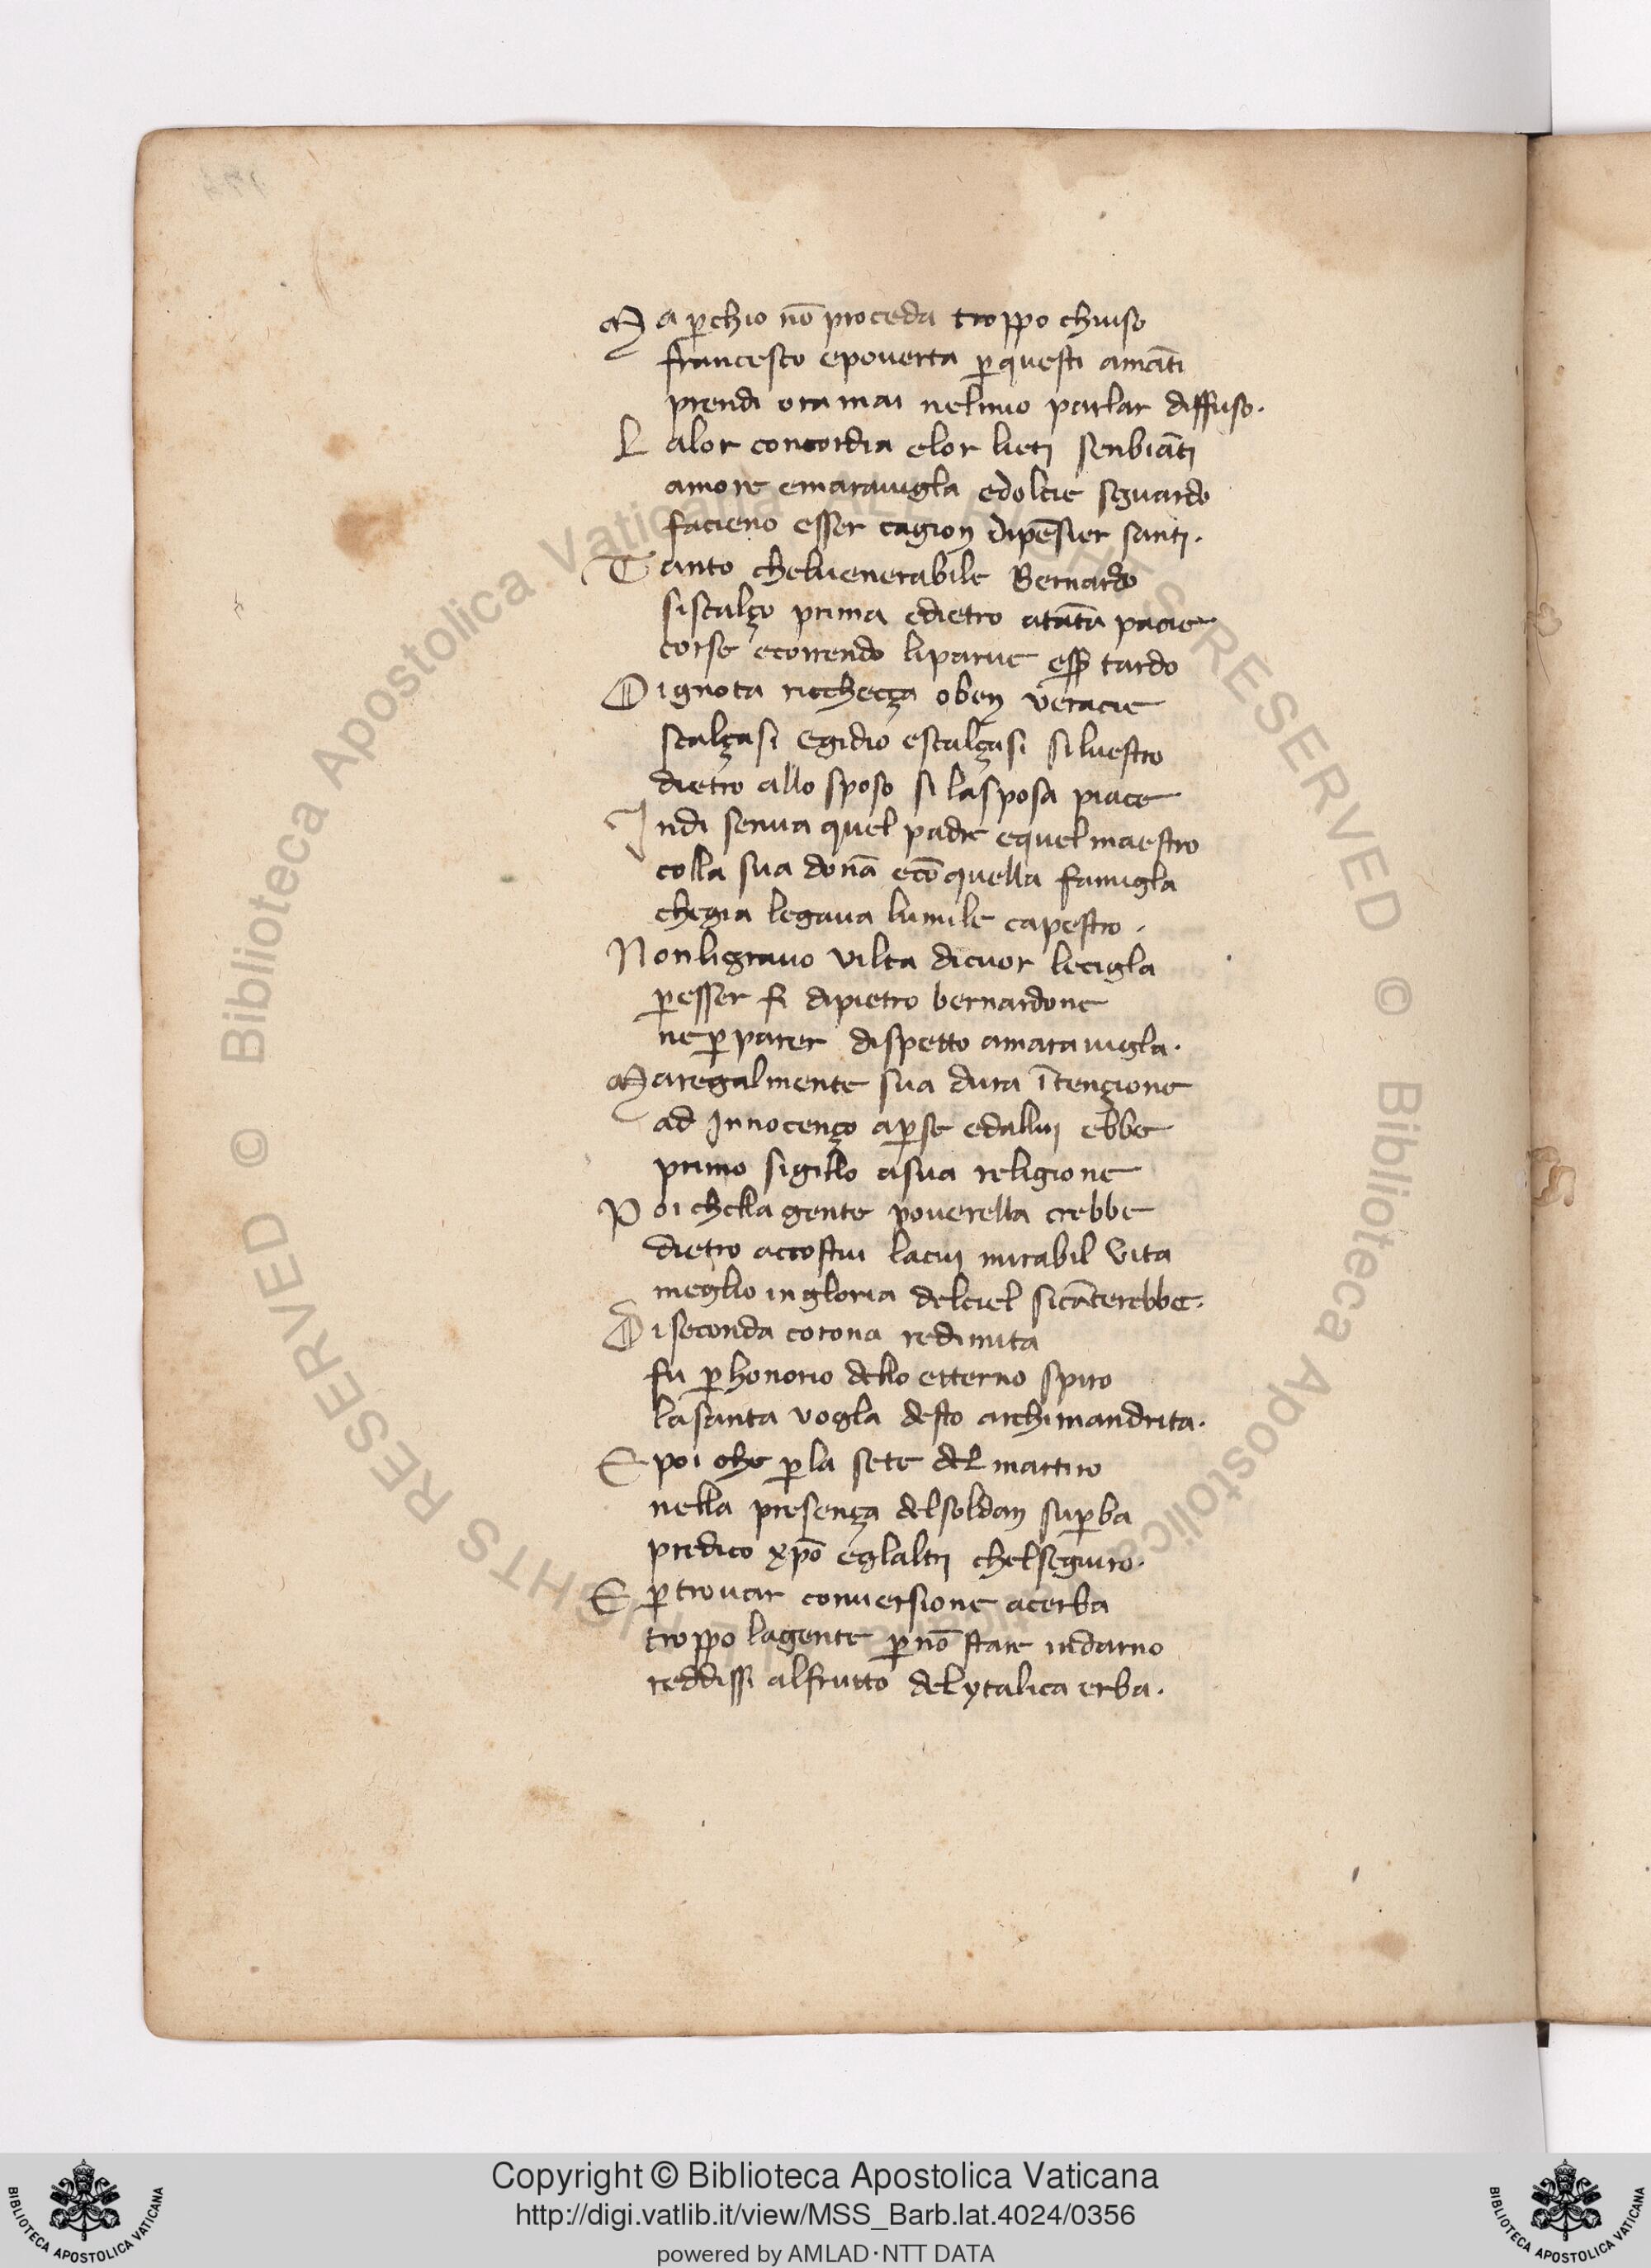 Ma ꝑchio nō proceda troppo chiuso
francesco epouerta ꝑquesti amāti
prendi oramai nelmio parlar diffuso.
Lalor concordia elor lieti senbiāti
amore emarauigla edolcie sguardo
facieno esser cagion dipēsier santi.
Tanto cheluenerabile Bernardo
siscalço prima edietro atāta pacie
corse ecorrendo liparue esſꝑ tardo
Oignota riccheçça oben veracie
scalçasi Egidio escalçasi siluestro
dietro allo sposo si lasposa piace
Indi senua quel padre equelmaestro
colla sua donā ecō quella famigla
chegia legaua lumile capestro.
Nonligrauo vilta dicuor lecigla
ꝑesser fi dipietro bernardone
neꝑparer dispetto amarauigla.
Maregalmente sua dura ītençione
ad Innocenço aꝑse edallui ebbe
primo sigillo asua religione
Poi chella gente pouerella crebbe
dietro accostui lacui mirabil vita
meglio in gloria delciel sicāterebbe.
Di seconda corona redimita
fu ꝑhonorio dello etterno spiro
lasanta vogla desto archimandrita.
E poi che ꝑla sete del martiro
nella presença delsoldan suꝑba
predico xp̄o eglaltri chelseguiro.
E ꝑtrouar conuersione acerba
troppo lagente ꝑnō stare indarno
reddissi alfrutto delytalica erba.
© Biblioteca Apostolica Vaticana ALL RIGHTS RESERVED
© Biblioteca Apostolica Vaticana ALL RIGHTS RESERVED
Copyright © Biblioteca Apostolica Vaticana
http://digi.vatlib.it/view/MSS_Barb.lat.4024/0356
powered by AMLAD·NTT DATA
BIBLIOTECA APOSTOLICA VATICANA
BIBLIOTECA APOSTOLICA VATICANA